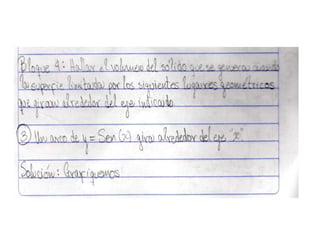 Bloque 4: Hallar el volumen del solido que se genera cuando
la superficie limitada por los siguientes lugares geometricos
que giran alrededor del eje indicado.
③ Un arco de y = Sen(x) gira alrededor del eje "x"
Solución: Grafiquemos